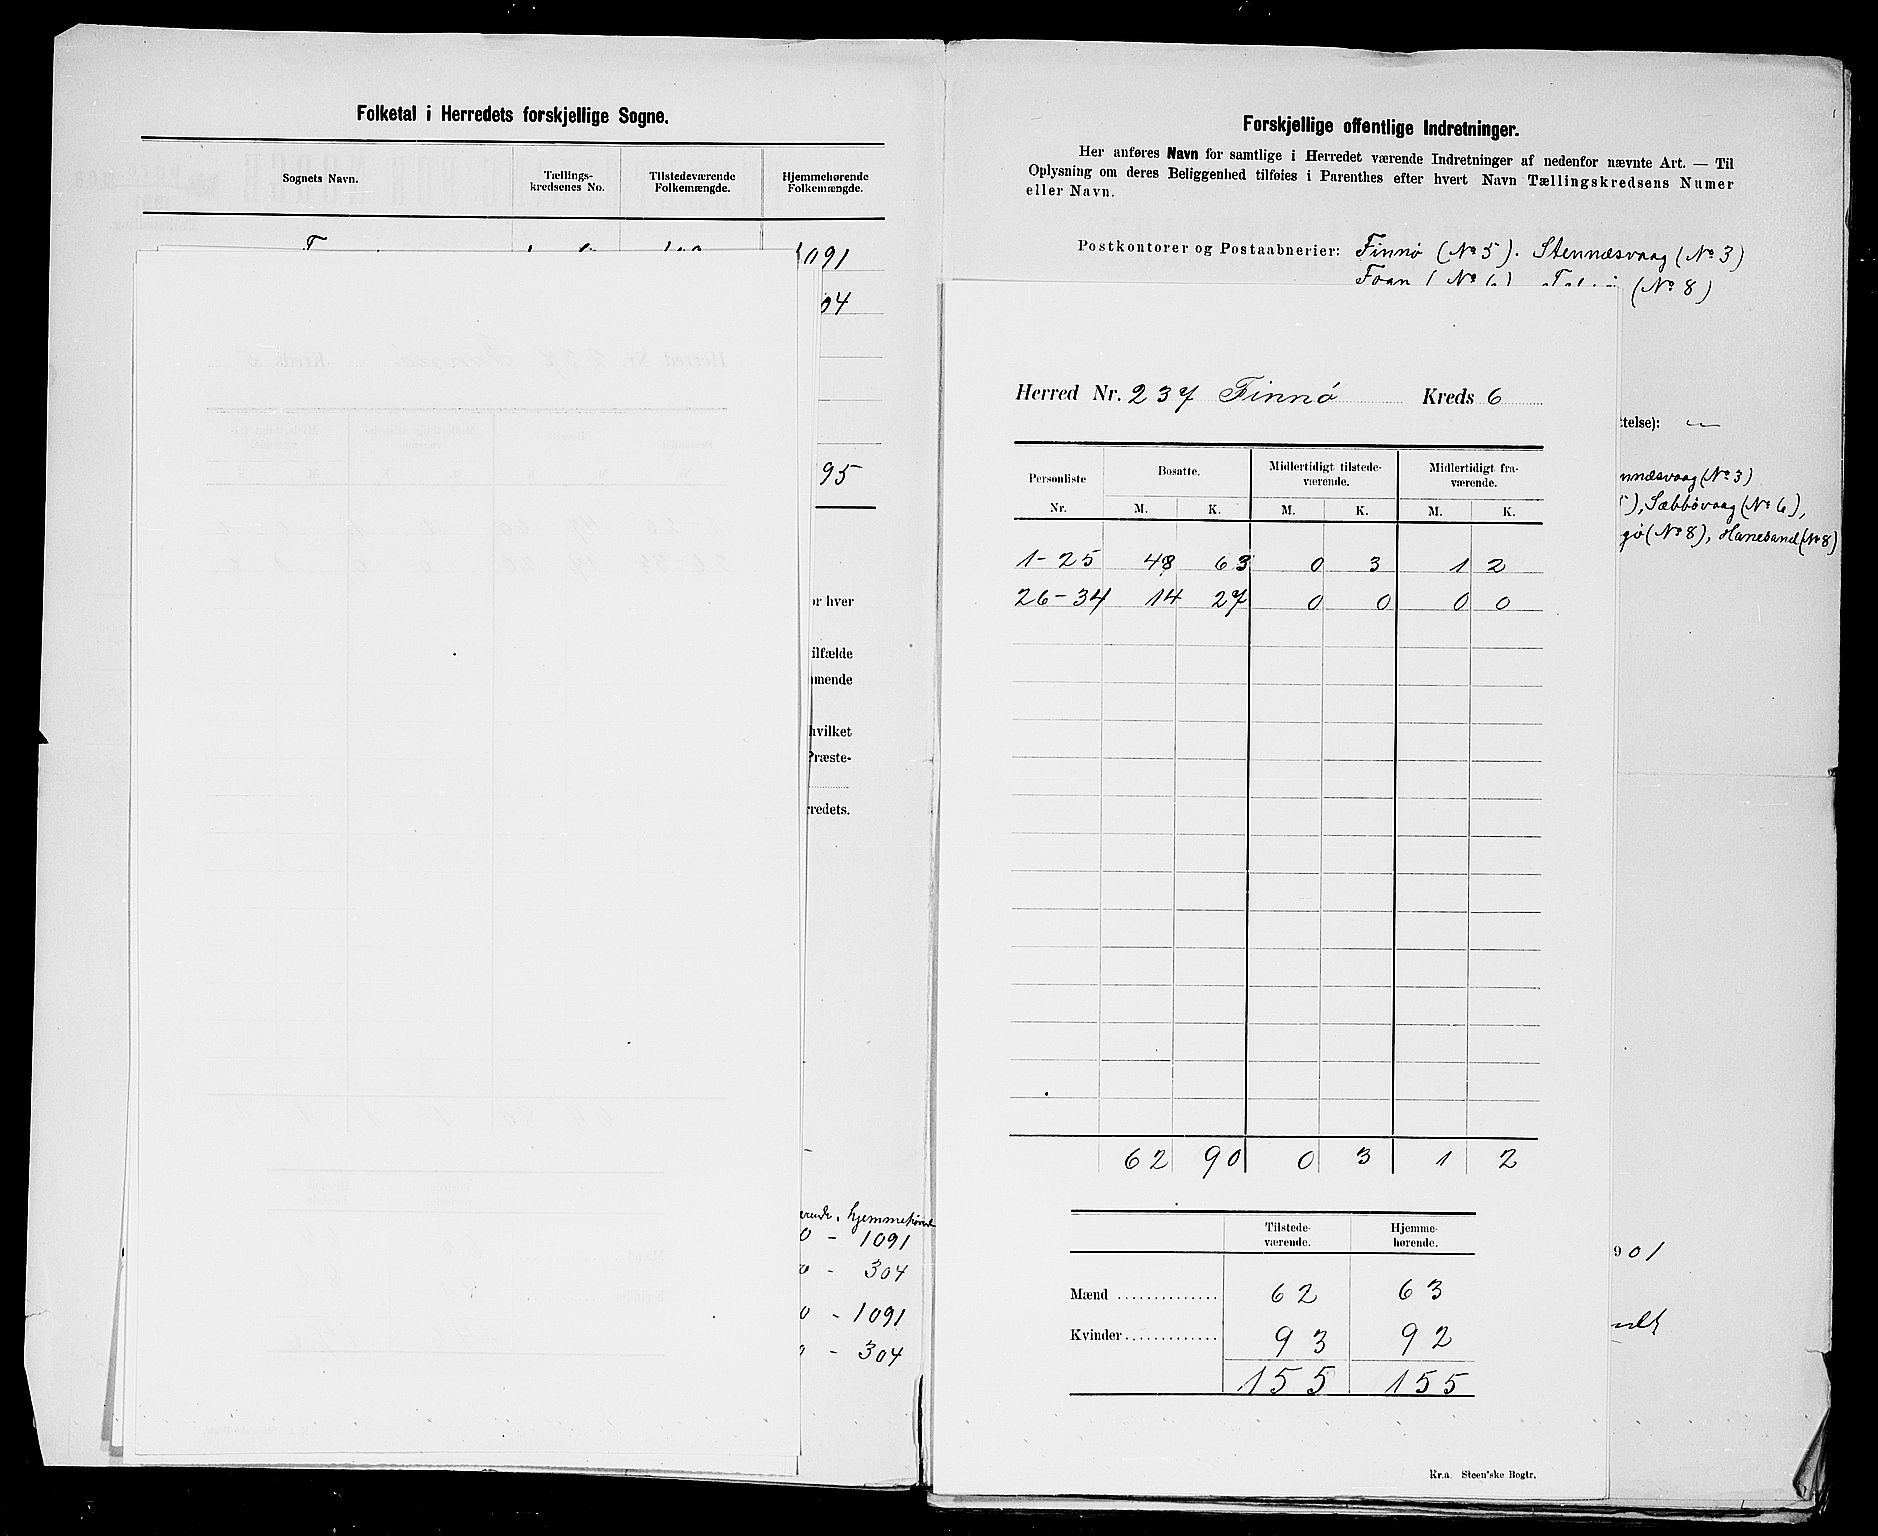 Folketal i Herredets forskjellige Sogne.
Sognets Navn.
Tællings-
kredsenes No.
Tilstedeværende
Folkemængde.
Hjemmehørende
Folkemængde.
1091
04
95
or hver
ilfælde
mende
hvilket
Præste-
rredets.
erende, hjemmehørende
0 - 1091
0 - 304
0 - 1091
0 - 304
Forskjellige offentlige Indretninger.
Her anføres Navn for samtlige i Herredet værende Indretninger af nedenfor nævnte Art. — Til
Oplysning om deres Beliggenhed tilføies i Parenthes efter hvert Navn Tællingskredsens Numer
eller Navn.
Postkontorer og Postaabnerier: Finnø (No 5). Stennæsvaag (No 3)
Foan (No 6) (No 8)
ttelse): —
nnæsvaag (No 3)
5), Sæbbøvaag (No 6),
gø (No 8), Hanesand (No 8)
901
Herred Nr. 237 Finnø Kreds 6
Personliste
Nr.
Bosatte.
Midlertidigt tilstede-
værende.
Midlertidigt fra-
værende.
M. K. M. K. M. K.
1-25 48 63 0 3 1 2
26-34 14 27 0 0 0 0
62 90 0 3 1 2
Tilstede-
værende.
Hjemme-
hørende.
Mænd .............. 62 63
Kvinder ............. 93 92
155 155
Kr.a. Steen'ske Bogtr.